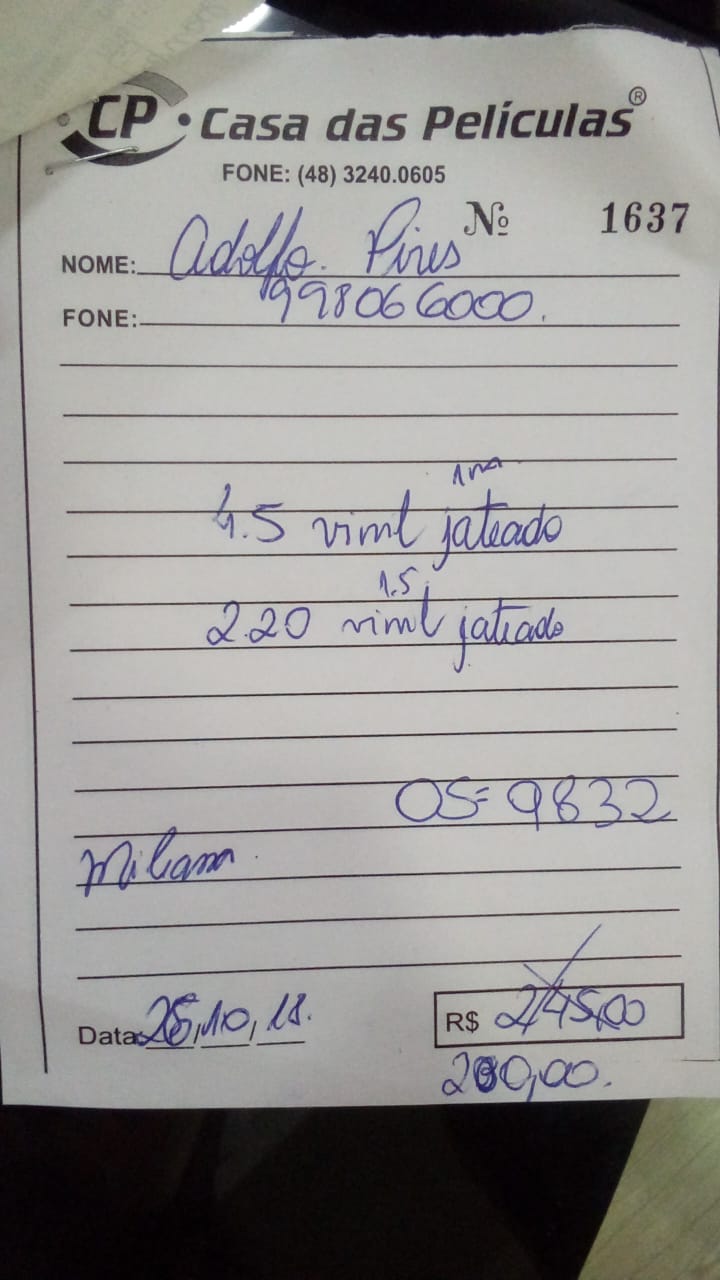 CP • Casa das Películas®
FONE: (48) 3240.0605
Nº 1637
NOME: Adolfo. Pires
FONE: 998066000.
4.5 vinil jateado
1.5
2.20 vinil jateado
OS= 9832
Data ,10, 18.
R$ 245,00
,00.